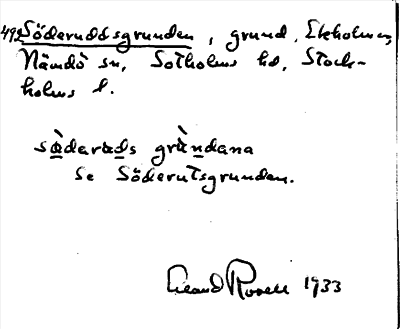 Söderuddsgrunden, grund, Ekholmen,
Nämdö sn, Sotholms hd, Stock-
holms l.
sὰdarads grὰndana
se Söderutsgrunden.
Rosell 1933